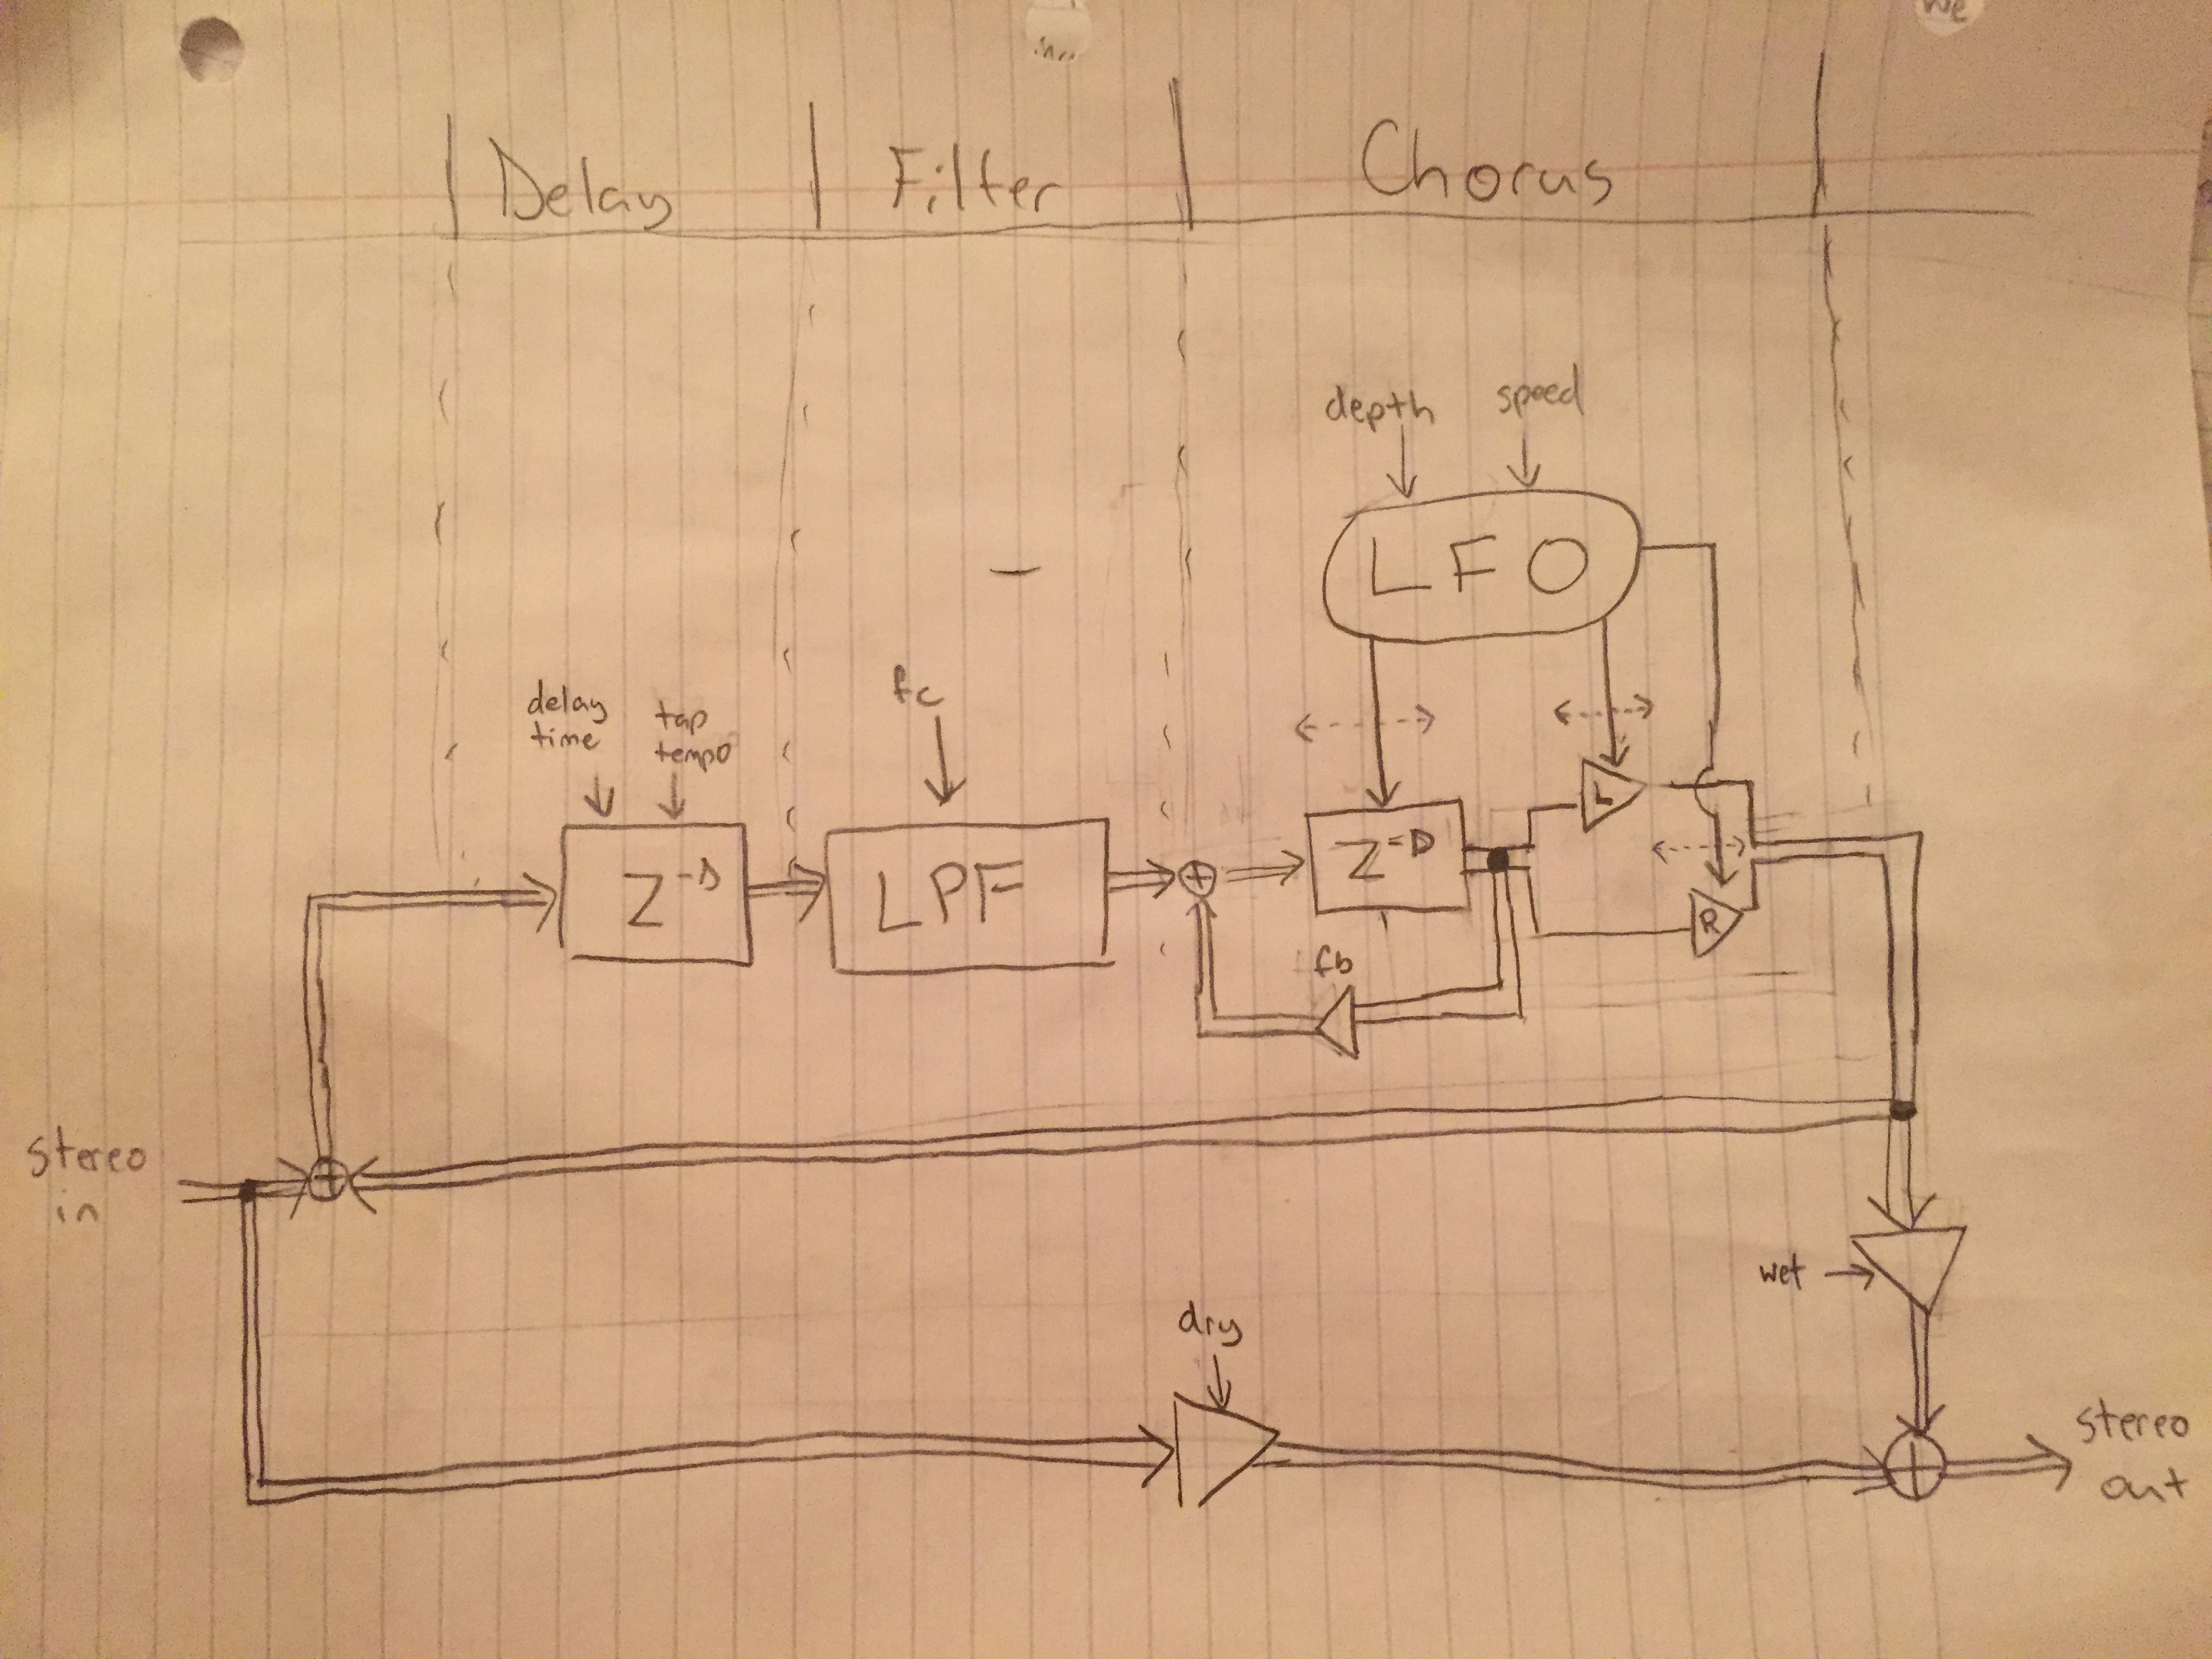 we
in...
Delay
Filter
Chorus
depth
speed
LFO
delay
time
tap
tempo
fc
Z-D
LPF
+
Z-D
L
R
fb
stereo
in
+
wet
dry
+
stereo
out